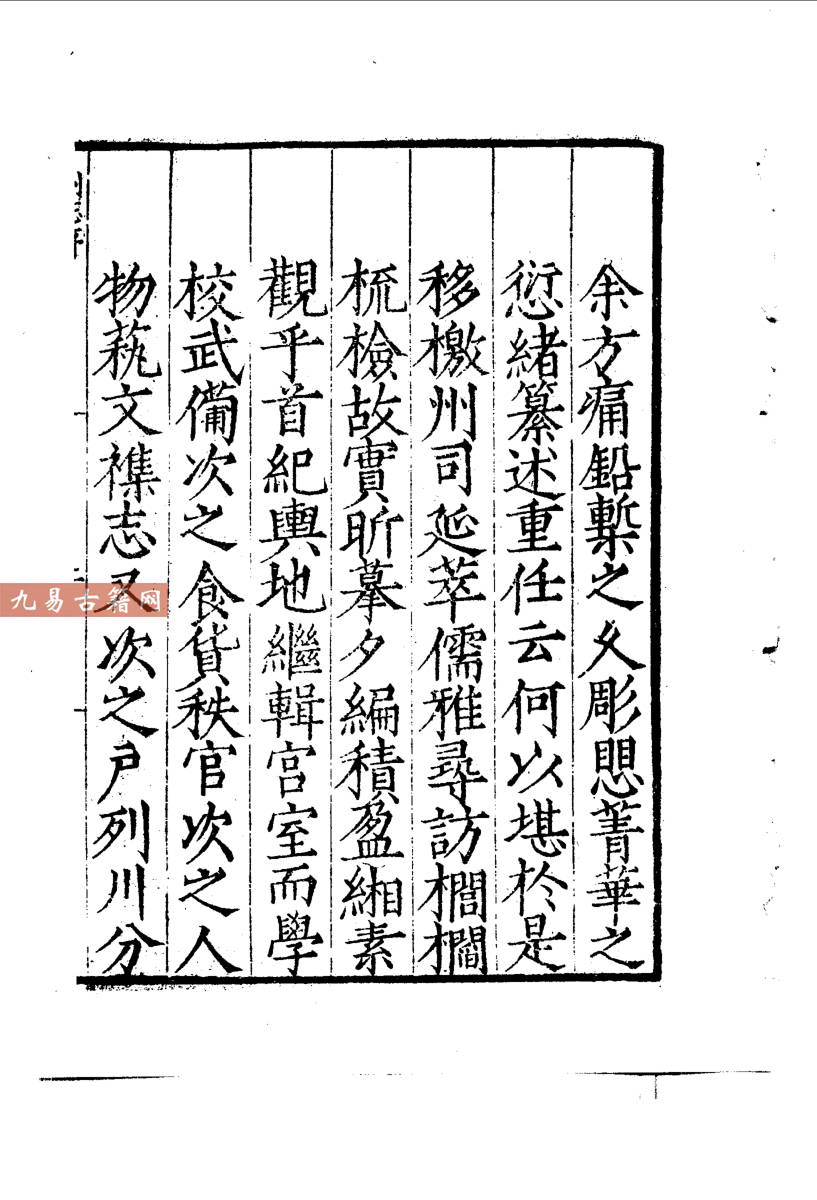 余方痛鉛槧之久彫愳菁華之
愆緒纂述重任云何以堪於是
移檄州司延萃儒雅尋訪櫚櫩
梳檢故實昕摹夕編積盈緗素
觀乎首紀輿地繼輯宮室而學
校武備次之食貨秩官次之人
物蓺文襍志又次之戶列川分
九易古籍网